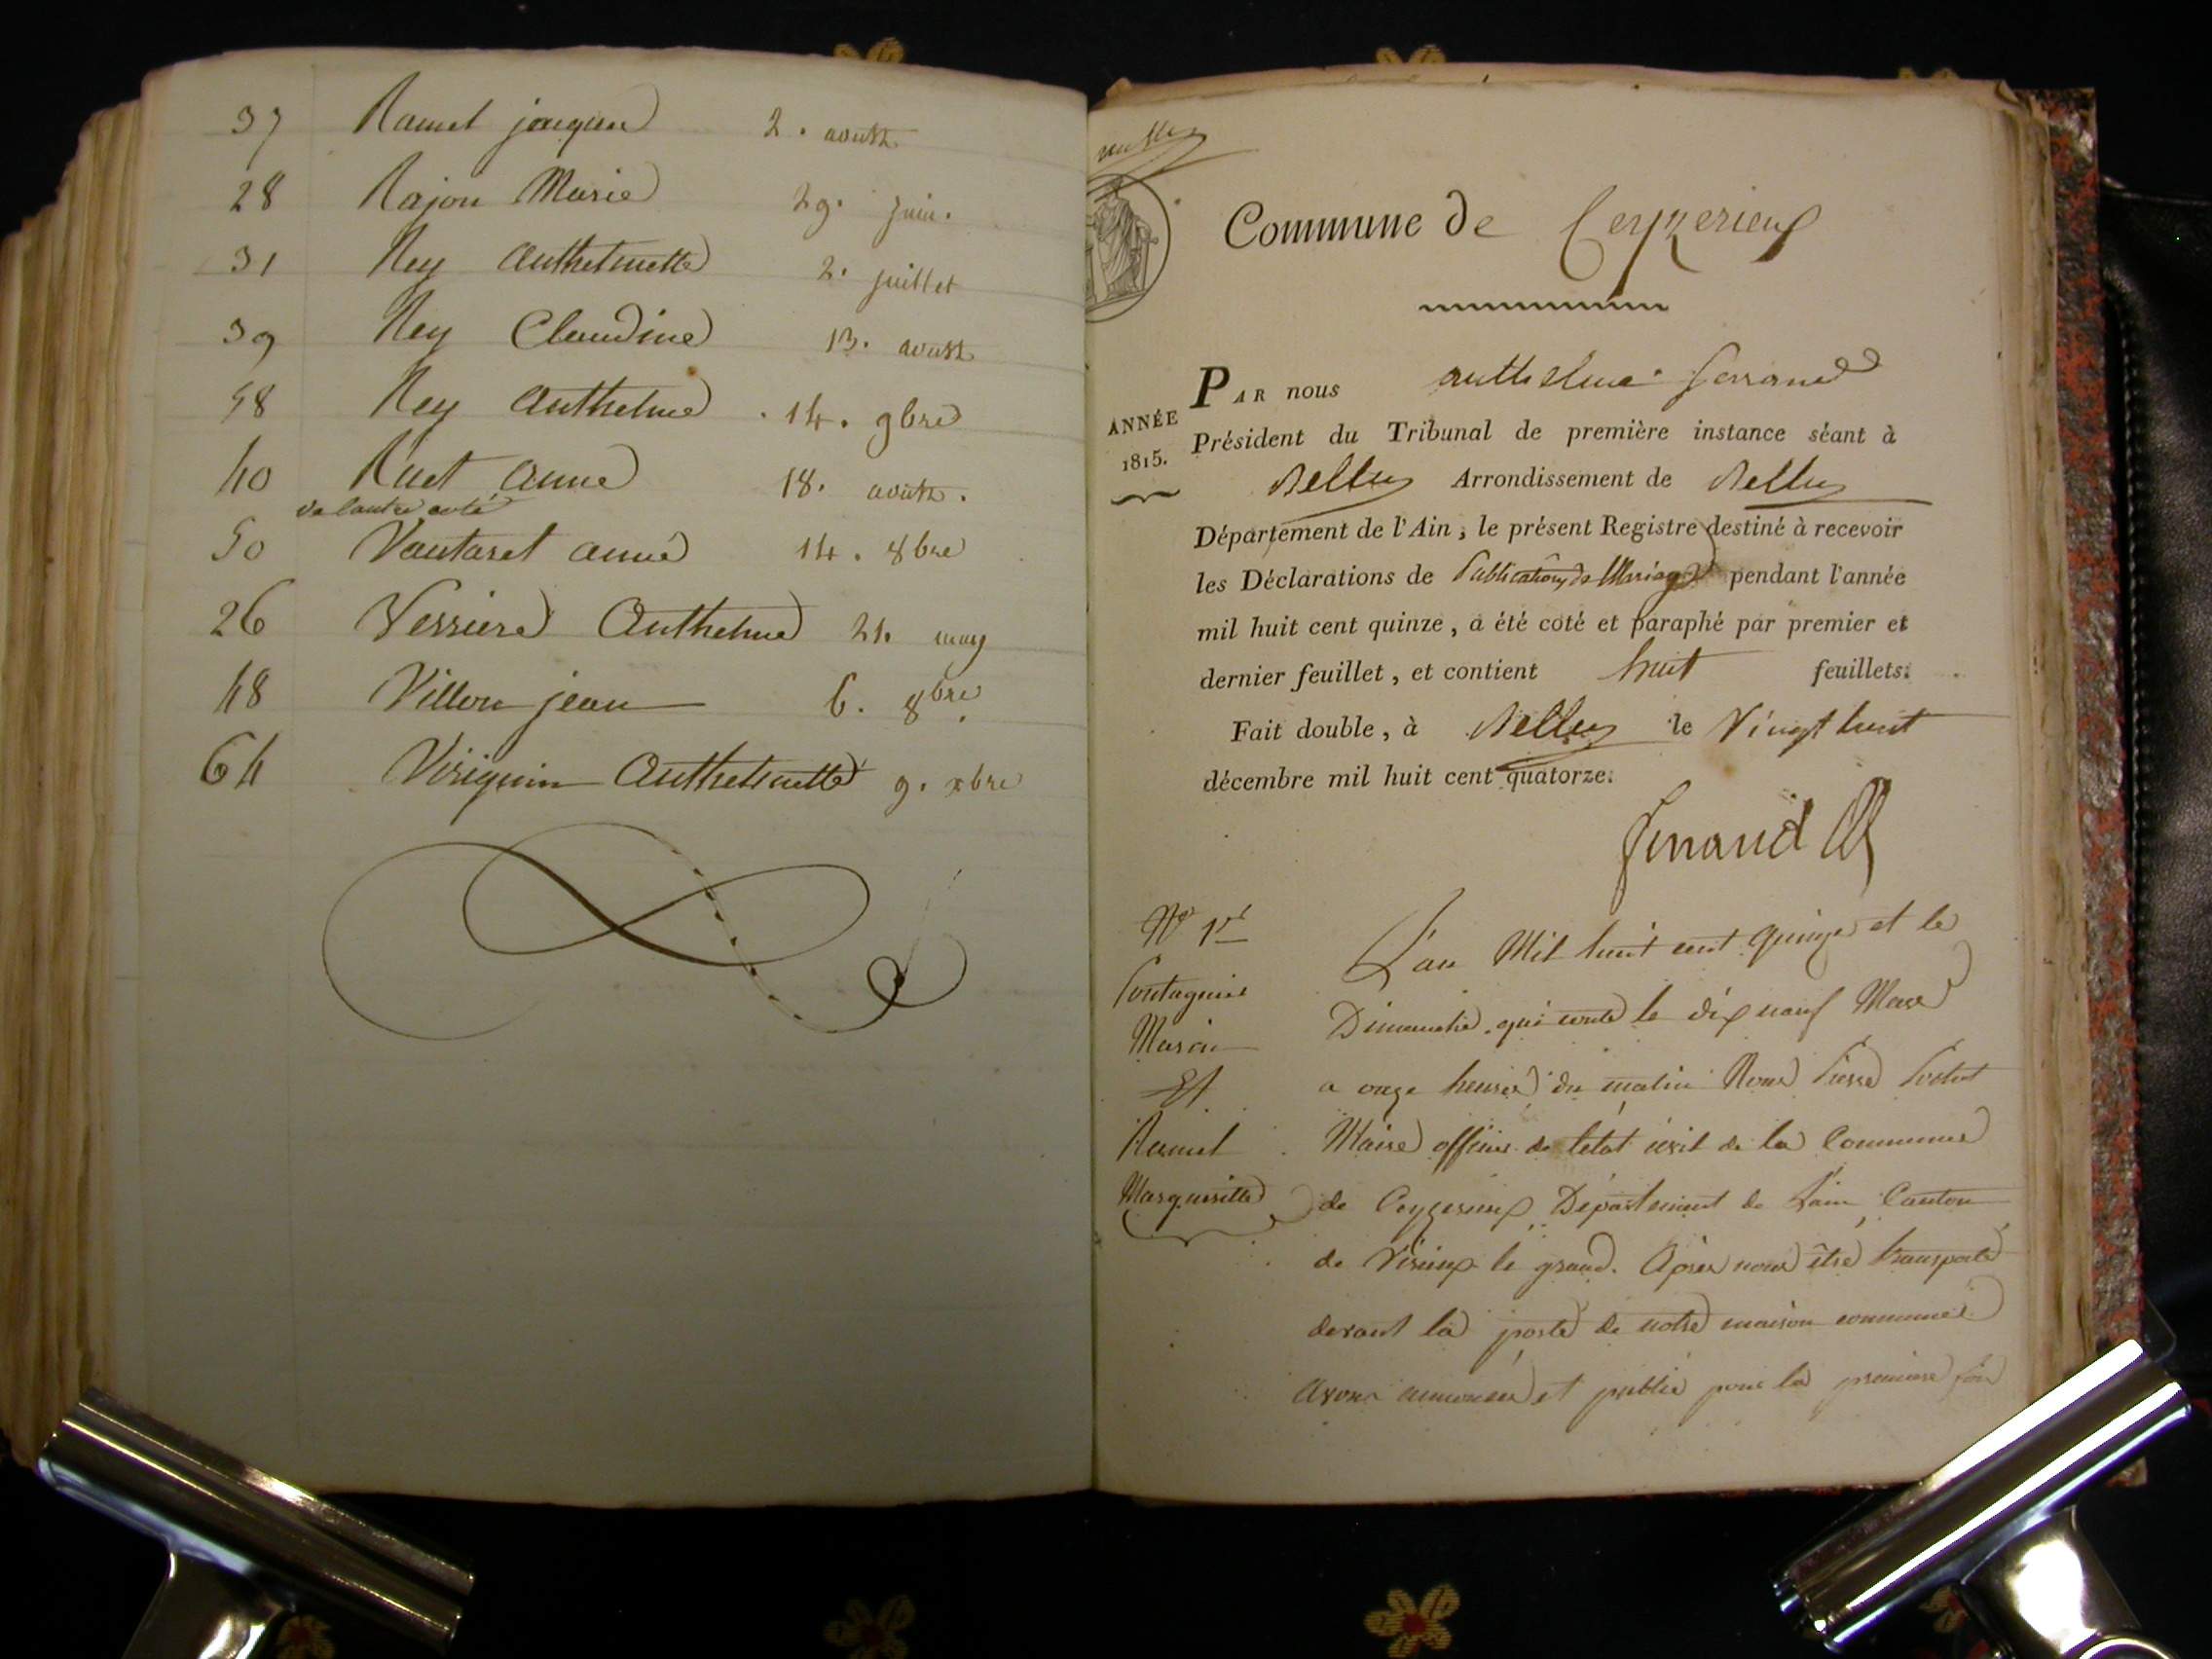 37 Ramel jacques 2. aoust
28 Rajon Marie 29. juin.
31 Rey Anthelmette 2. juillet
39 Rey Claudine 13. aoust
58 Rey Anthelme 14. 9bre
40 Ruet anne 18. aoust.
de lautre coté
50 Vautaret anne 14. 8bre
26 Verriere Anthelme 21. may
48 Villon jean 6. 8bre
64 Virignin Anthelmette 9. xbre
Commune de Ceyzerieux
PAR nous anthelme ferrand
ANNÉE
1815.
Président du Tribunal de première instance séant à
Belley Arrondissement de Belley
Département de l'Ain, le présent Registre destiné à recevoir
les Déclarations de Publications de Mariage pendant l'année
mil huit cent quinze, a été coté et paraphé par premier et
dernier feuillet, et contient huit feuillets.
Fait double, à Belley le Vingt huit
décembre mil huit cent quatorze.
No 1er
Marin
Et
Ramel
Margueritte
L'an Mil huit cent quinze et le
Dimanche qui conte le dix neuf Mars
a onze heures du matin Nous Pierre
Maire officier de letat civil de la Commune
de Ceyzerieux Département de Lain Canton
de Virieux le grand. Après nous être transporté
devant la porte de notre maison commune
Avons annoncé et publié pour la premiere fois